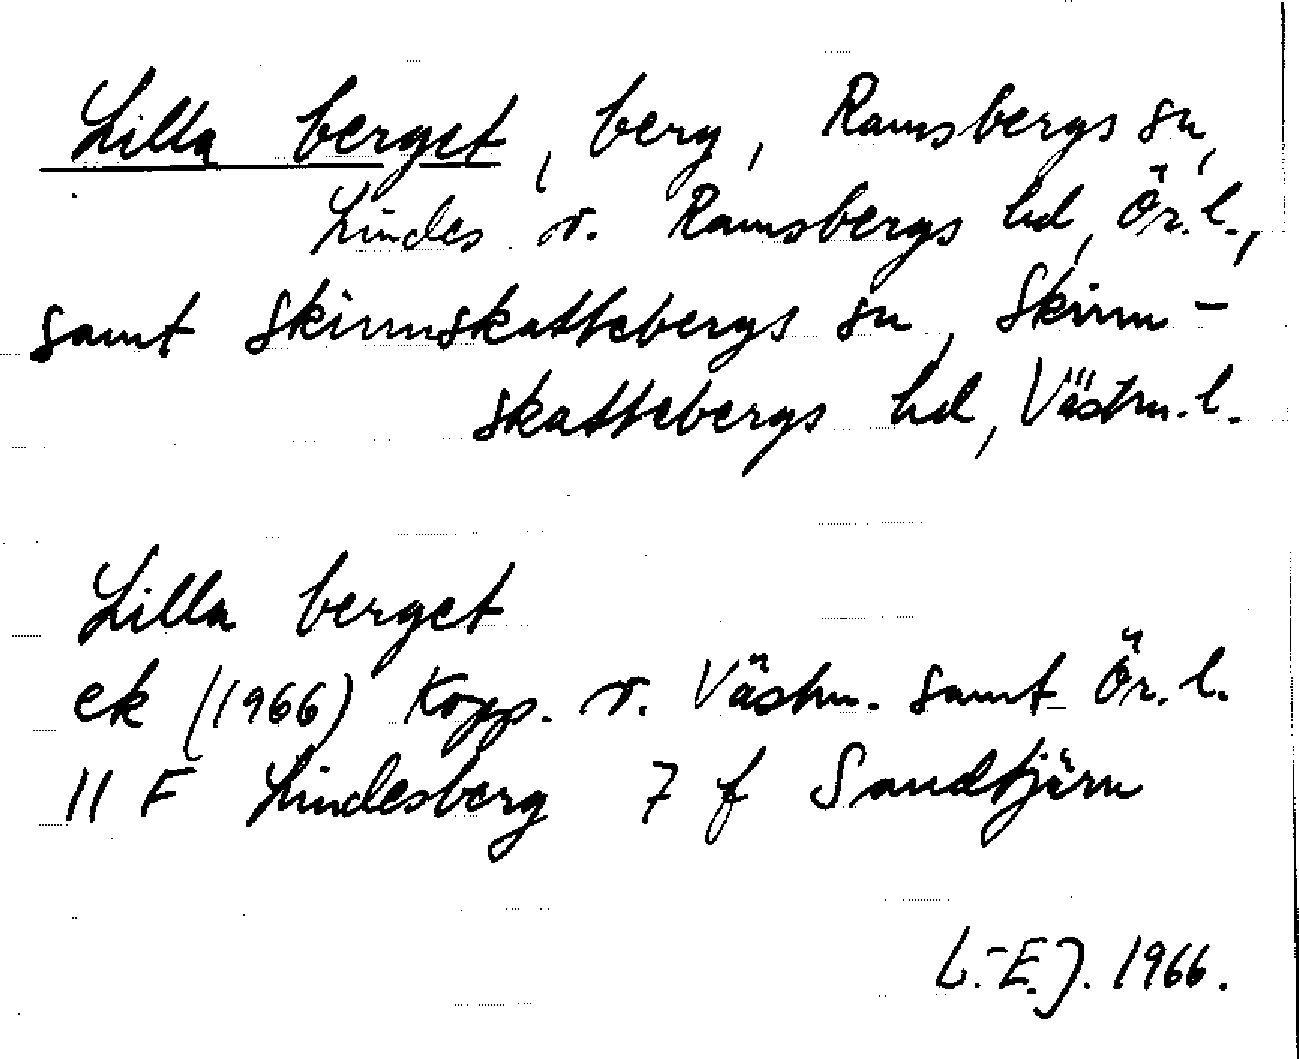 Lilla berget, berg, Ramsbergs sn,
Lindes o. Ramsbergs hd, Ör. l.,
samt Skinnskattebergs sn, Skinn-
skattebergs hd, Västm. l.
Lilla berget
ek (1966) Kopp. o. Västm. samt Ör. l.
11 F Lindesberg 7 f Sandtjärn
L.-E. J. 1966.